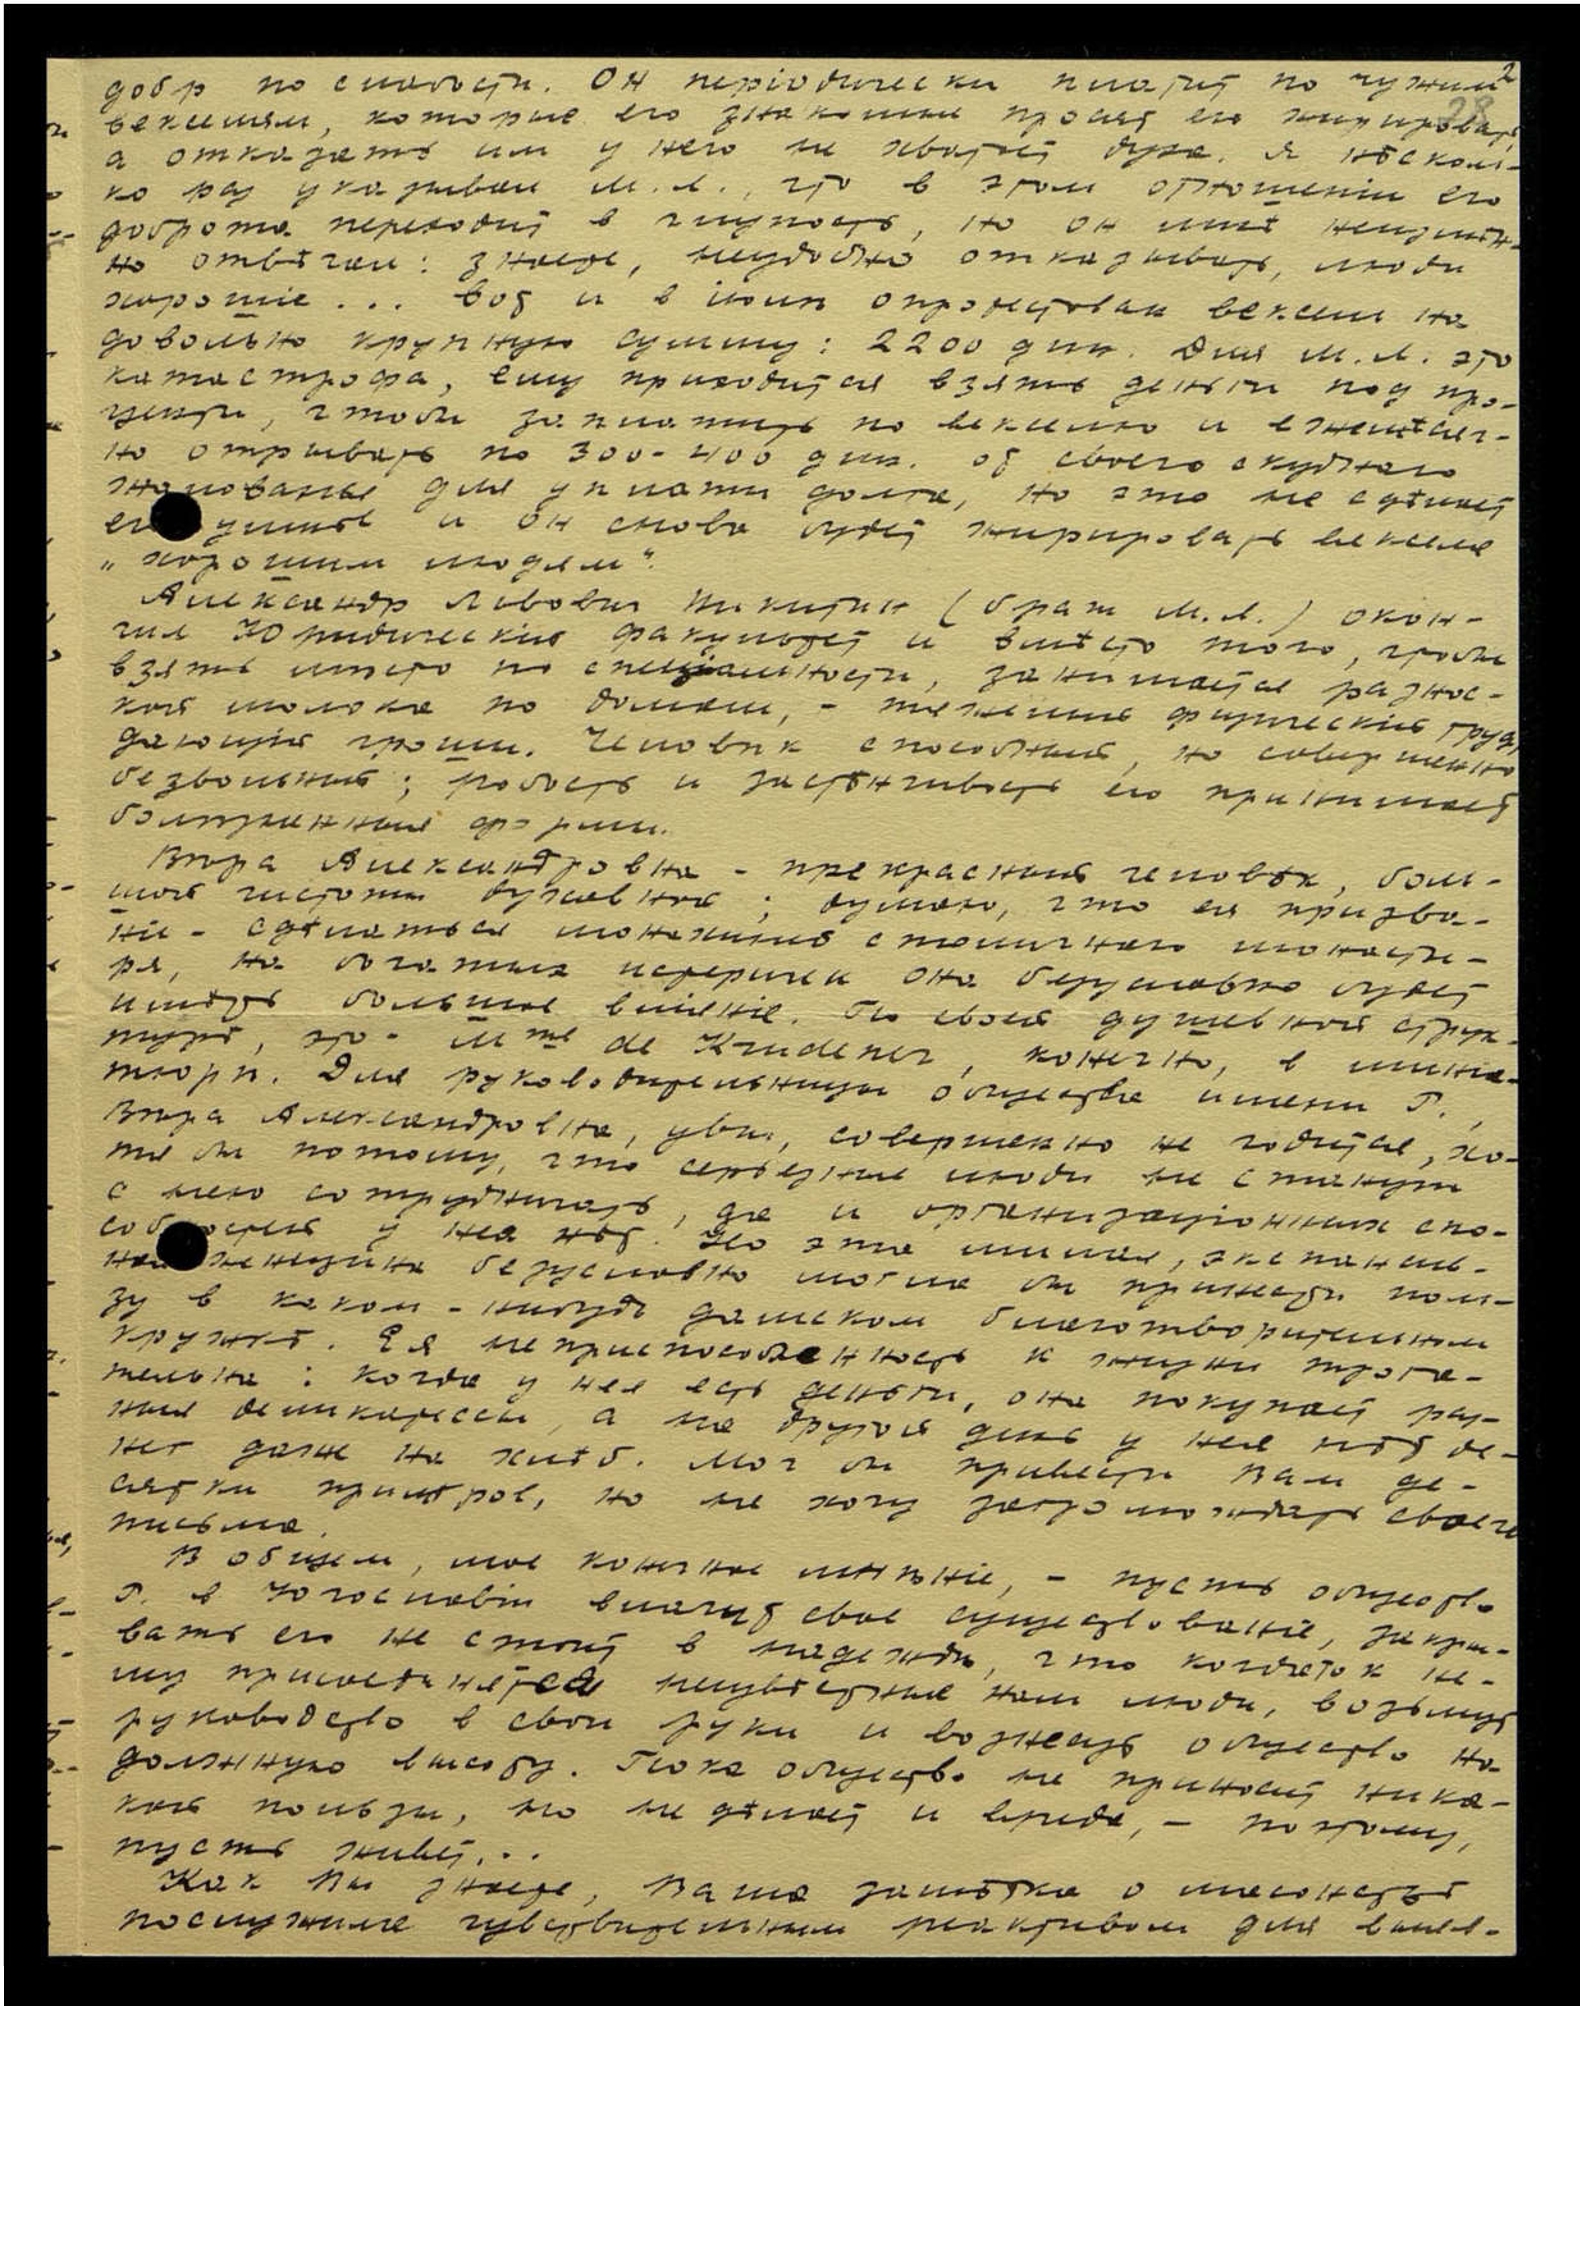 2
28
добр по слабости. Он періодически платит по чужим
векселям, которые его знакомые просят его жирировать,
а отказать им у него не хватает духа. Я нѣсколь-
ко раз указывал М.Л., что в этом отношеніи его
доброта переходит в глупость, но он мнѣ неизмѣн-
но отвѣчал: знаете, неудобно отказывать, люди
хорошіе... Вот и в іюнѣ опротестован вексель на
довольно крупную сумму: 2200 дин. Для М.Л. это
катастрофа, ему приходится взять деньги под про-
центы, чтобы заплатить по векселю и ежемѣсяч-
но отрывать по 300-400 дин. от своего скуднаго
жалованья для уплаты долга, но это не сдѣлает
его умнѣе и он снова будет жирировать векселя
„хорошим людям".
Александр Львович Никитин (брат М.Л.) окон-
чил Юридическій факультет и вмѣсто того, чтобы
взять мѣсто по спеціальности, занимается разнос-
кой молока по домам, - тяжелый физическій труд,
дающій гроши. Человѣк способный, но совершенно
безвольный; робость и застѣнчивость его принимает
болѣзненныя формы.
Вѣра Александровна - прекрасный человѣк, боль-
шой чистоты душевной; думаю, что ея призва-
ніе - сдѣлаться монахиней столичнаго монасты-
ря, на богатых истеричек она безусловно будет
имѣть большое вліяніе. По своей душевной струк-
турѣ, это - Mme de Krudener, конечно, в миніа-
тюрѣ. Для руководительницы общества имени Р.,
Вѣра Александровна, увы, совершенно не годится, хо-
тя бы потому, что серьезные люди не станут
с нею сотрудничать, да и организаціонных спо-
собностей у нея нѣт. Но эта милая, экспансив-
ная женщина безусловно могла бы принести поль-
зу в каком-нибудь дамском благотворительном
кружкѣ. Ея неприспособленность к жизни трога-
тельна: когда у нея есть деньги, она покупает раз-
ные деликатессы, а на другой день у нея нѣт де-
нег даже на хлѣб. Мог бы привести Вам де-
сятки примѣров, но не хочу загромождать своего
письма.
В общем, мое конечное мнѣніе, - пусть общество
Р. в Югославіи влачит свое существованіе, закры-
вать его не стоит в надеждѣ, что когда-то к не-
му присоединятся неизвѣстные нам люди, возьмут
руководство в свои руки и вознесут общество на
должную высоту. Пока общество не приносит ника-
кой пользы, но не дѣлает и вреда, - поэтому,
пусть живет...
Как Вы знаете, Ваша замѣтка о масонствѣ
послужила чувствительным реактивом для выяв-